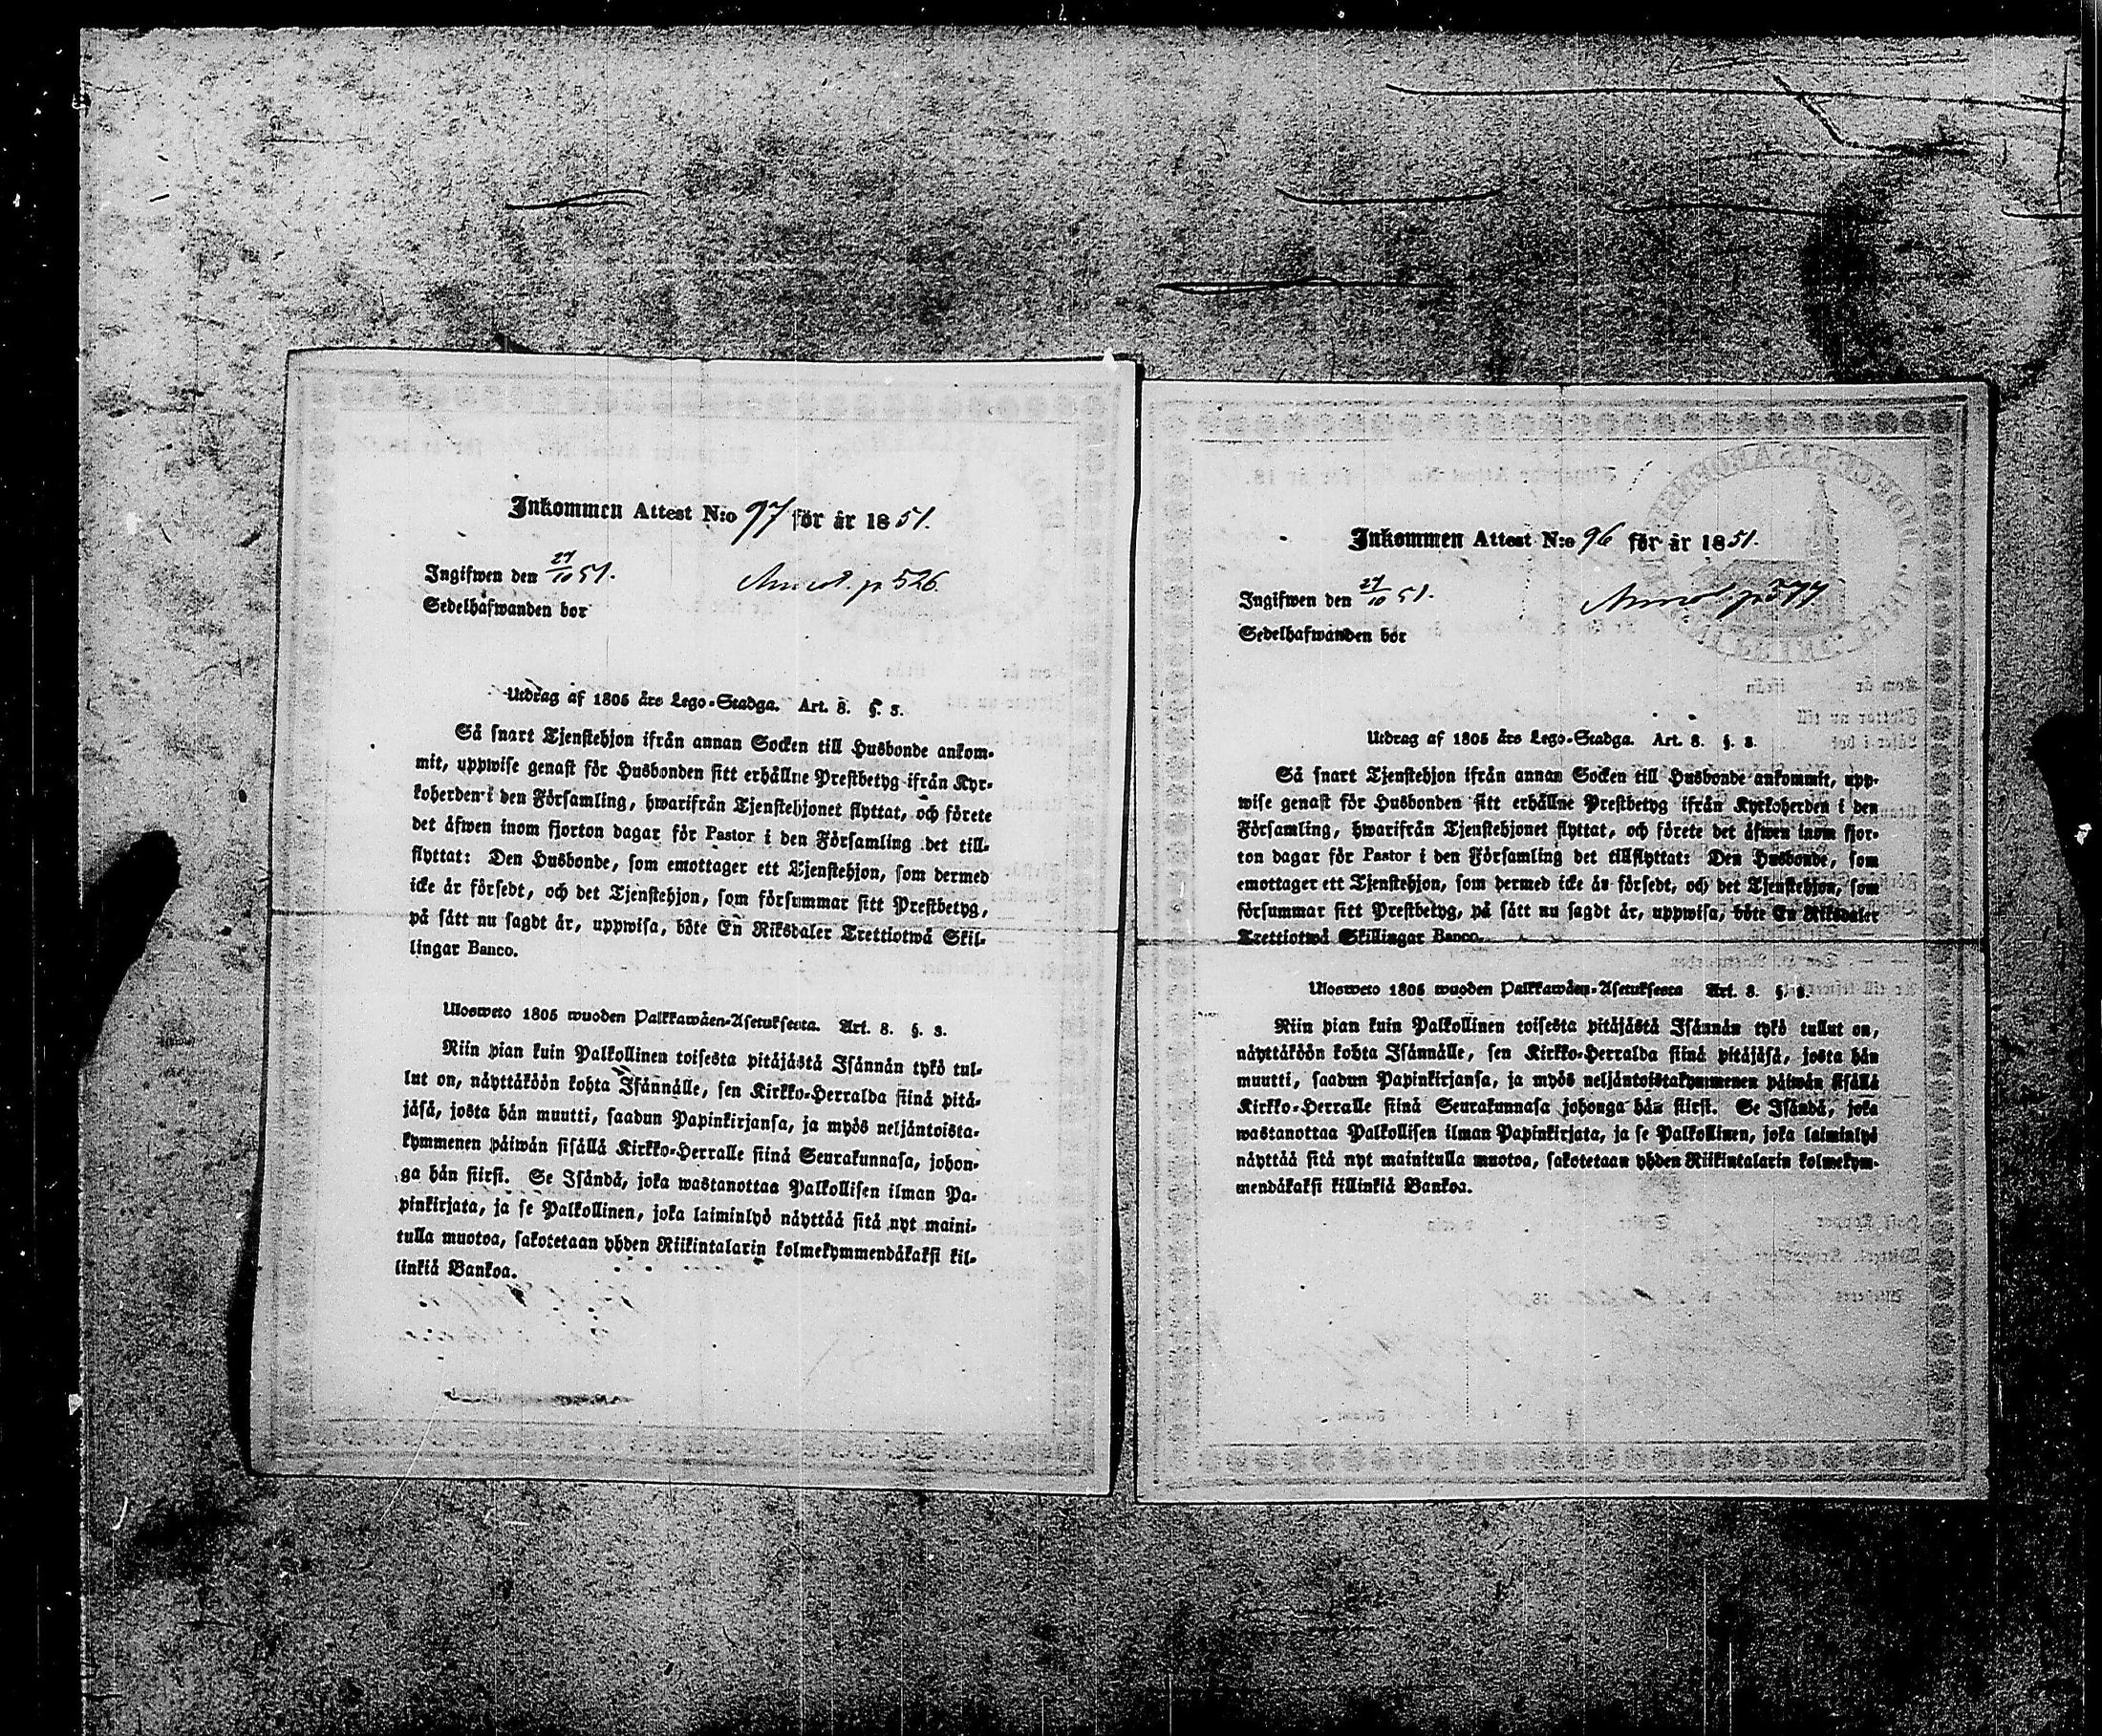 Inkommen Attest N:o 97 för år 1851.
Ingifwen den 27/10 51.
Annot. p 526.
Sedelhafwanden bor
Utdrag af 1805 års Lego-Stadga. Art. 8. §. 3.
Så snart Tjenstehjon ifrån annan Socken till Husbonde ankom-
mit, uppwise genast för Husbonden sitt erhållne Prestbetyg ifrån Kyr-
koherden i den Församling, hwarifrån Tjenstehjonet flyttat, och förete
det äfwen inom fjorton dagar för Pastor i den Församling det till-
flyttat: Den Husbonde, som emottager ett Tjenstehjon, som dermed
icke är försedt, och det Tjenstehjon, som försummar sitt Prestbetyg,
på sätt nu sagdt är, uppwisa, böte En Riksdaler Trettiotwå Skil-
lingar Banco.
Ulosweto 1805 wuoden Palkkawäen-Asetuksesta. Art. 8. §. 3.
Niin pian kuin Palkollinen toisesta pitäjästä Isännän tykö tul-
lut on, näyttäköön kohta Isännälle, sen Kirkko-Herralda siinä pitä-
jäsä, josta hän muutti, saadun Papinkirjansa, ja myös neljäntoista-
kymmenen päiwän sisällä Kirkko-Herralle siinä Seurakunnasa, johon-
ga hän siirsi. Se Isändä, joka wastanottaa Palkollisen ilman Pa-
pinkirjata, ja se Palkollinen, joka laiminlyö näyttää sitä nyt maini-
tulla muotoa, sakotetaan yhden Riikintalarin kolmekymmendäkaksi kil-
linkiä Bankoa.
Inkommen Attest N:o 96 för år 1851.
Ingifwen den 27/10 51.
Annot. p 577
Sedelhafwanden bor
Utdrag af 1805 års Lego-Stadga. Art. 8. §. 3.
Så snart Tjenstehjon ifrån annan Socken till Husbonde ankommit, upp-
wise genast för Husbonden sitt erhållne Prestbetyg ifrån Kyrkoherden i den
Församling, hwarifrån Tjenstehjonet flyttat, och förete det äfwen inom fjor-
ton dagar för Pastor i den Församling det tillflyttat: Den Husbonde, som
emottager ett Tjenstehjon, som dermed icke är försedt, och det Tjenstehjon, som
försummar sitt Prestbetyg, på sätt nu sagdt är, uppwisa, böte En Riksdaler
Trettiotwå Skillingar Banco.
Ulosweto 1805 wuoden Palkkawäen-Asetuksesta Art. 8. §. 3.
Niin pian kuin Palkollinen toisesta pitäjästä Isännän tykö tullut on,
näyttäköön kohta Isännälle, sen Kirkko-Herralda siinä pitäjäsä, josta hän
muutti, saadun Papinkirjansa, ja myös neljäntoistakymmenen päiwän sisällä
Kirkko-Herralle siinä Seurakunnasa johonga hän siirsi. Se Isändä, joka
wastanottaa Palkollisen ilman Papinkirjata, ja se Palkollinen, joka laiminlyö
näyttää sitä nyt mainitulla muotoa, sakotetaan yhden Riikintalarin kolmekym-
mendäkaksi killinkiä Bankoa.